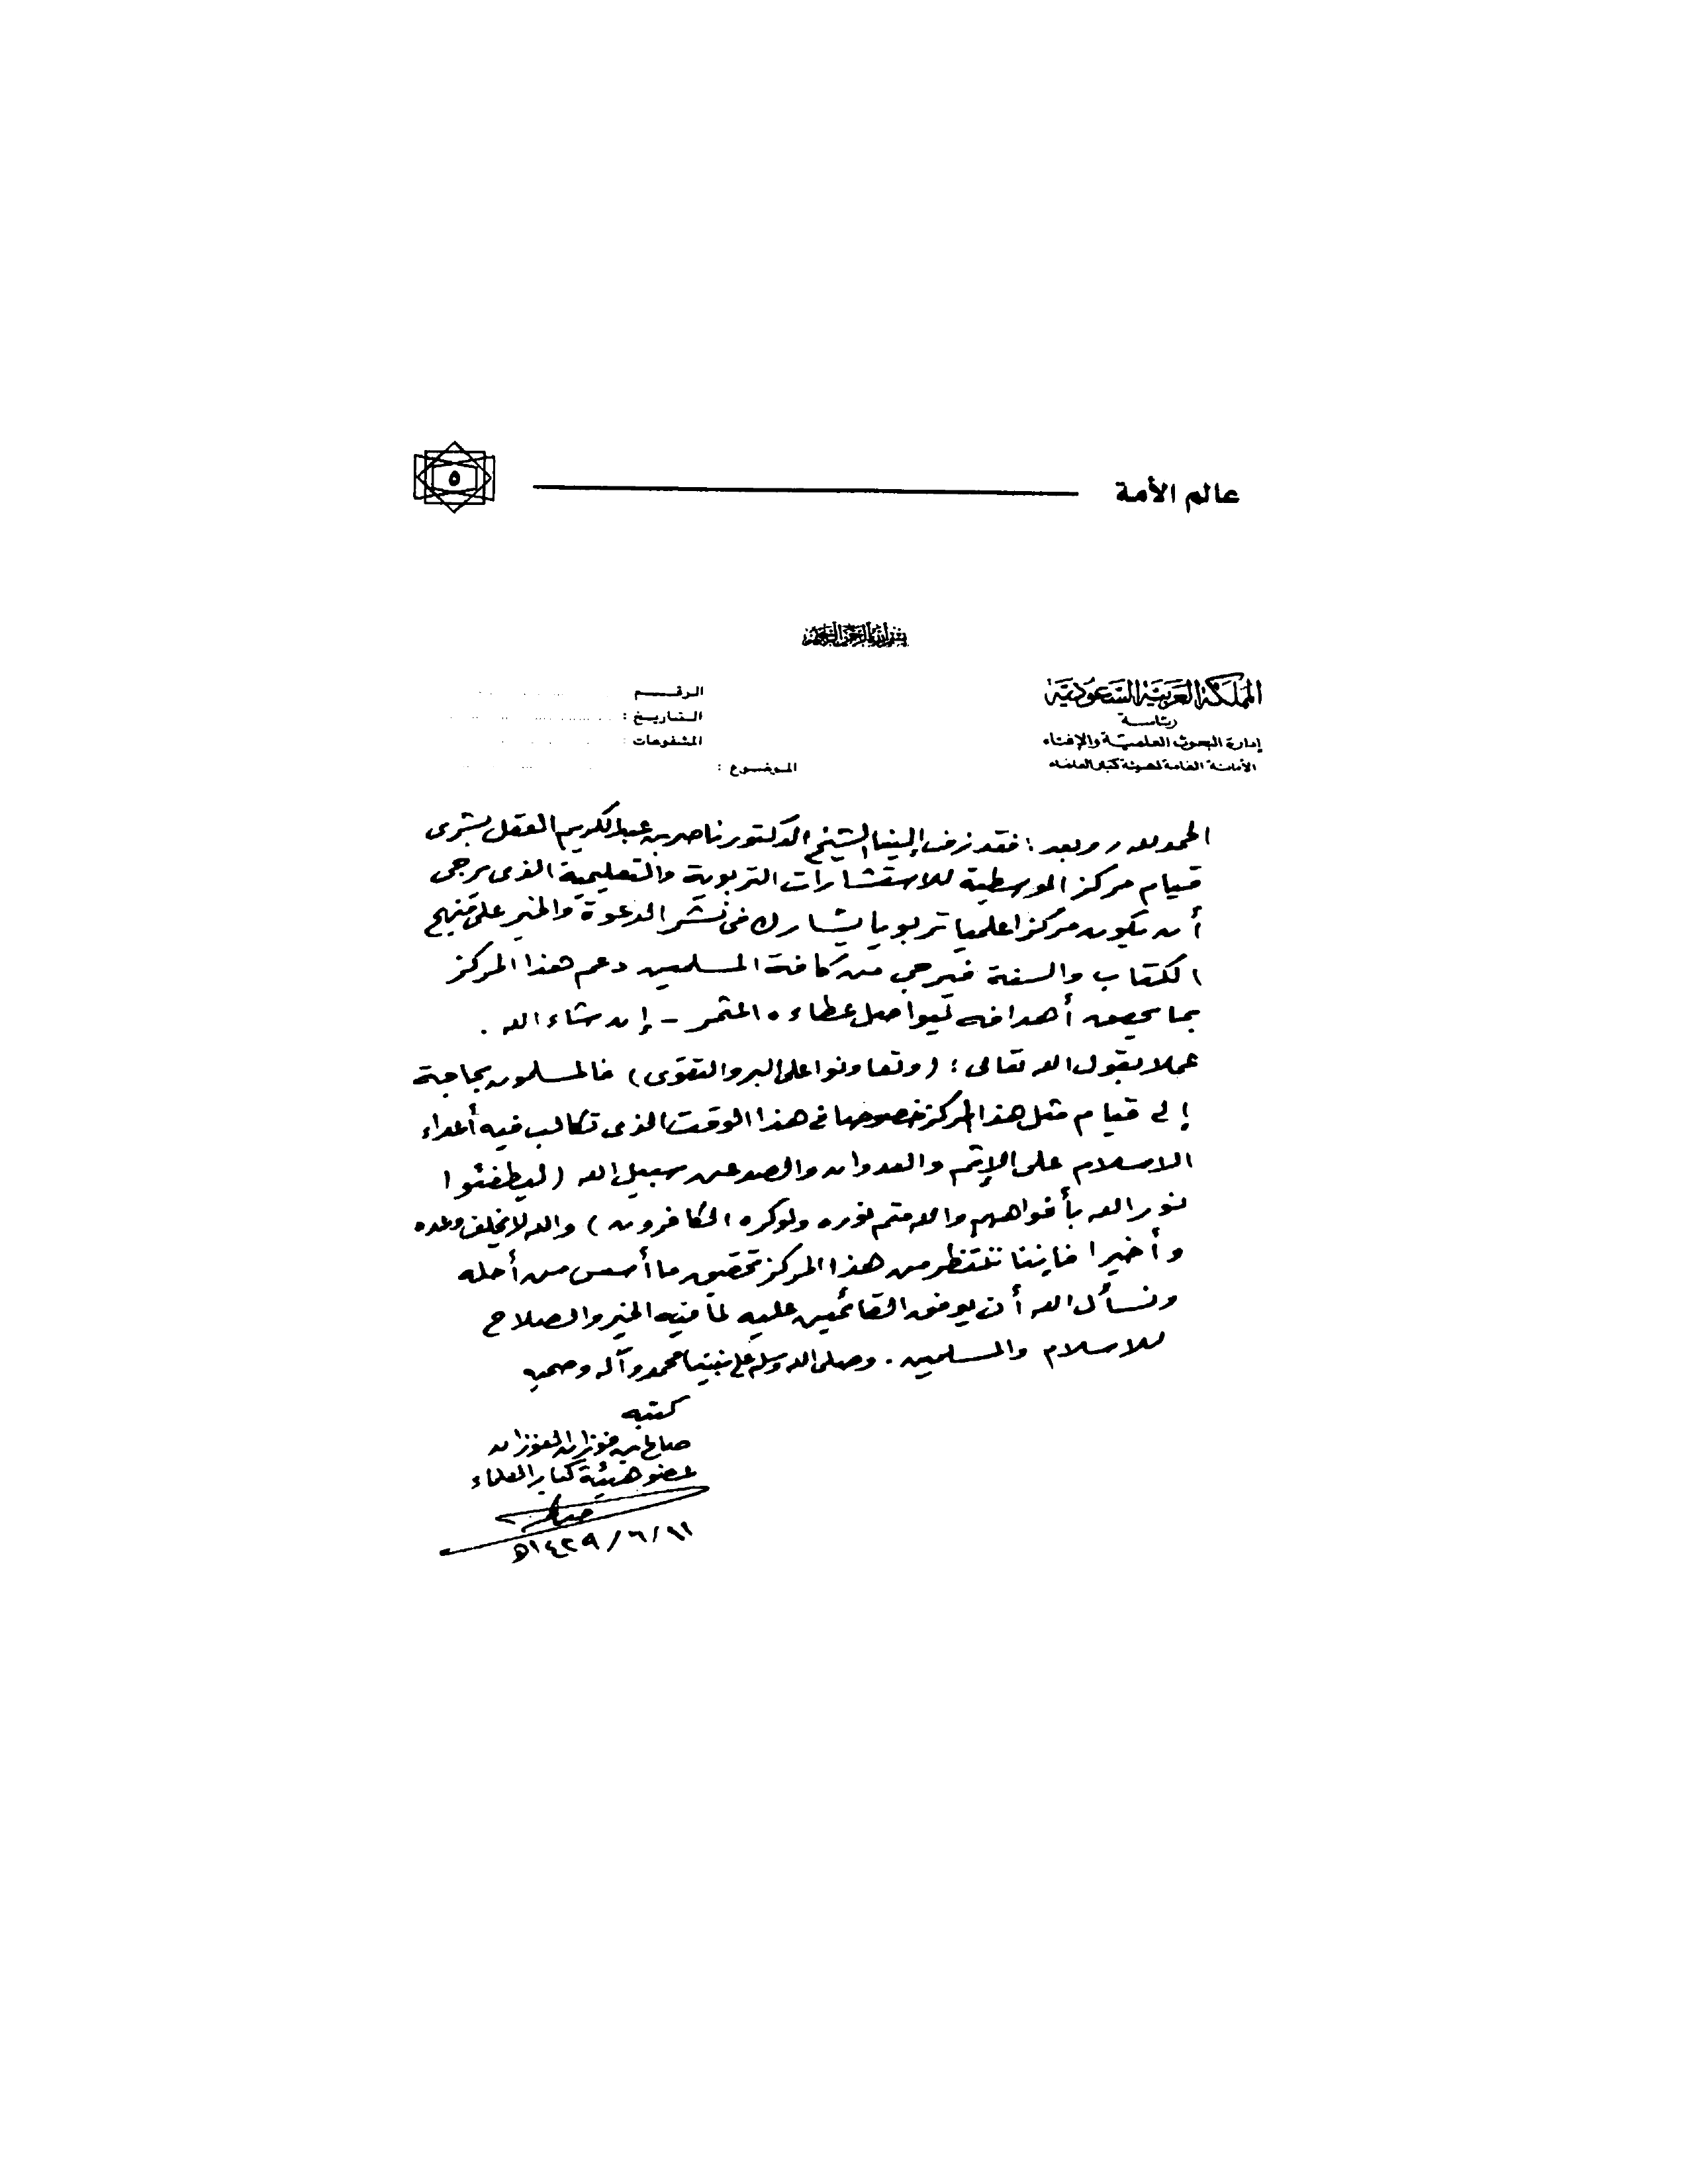 عالم الأمة
٥
بسم الله الرحمن الرحيم
المملكة العربية السعودية
رئاسة
إدارة البحوث العلمية والإفتاء
الأمانة العامة لهيئة كبار العلماء
الرقـــــم
التـاريـخ :
المشفوعات :
الموضـوع :
الحمد لله , وبعد : فقد زف إلينا الشيخ الدكتور ناصر بن عبد الكريم العقل بشرى
قيام مركز الوسطية للاستشارات التربوية والتعليمية الذى يرجى
أن يكون مركزا علميا تربويا يشارك فى نشر الدعوة والخير على منهج
الكتاب والسنة فيرجى من كافة المسلمين دعم هذا المركز
بما يحقق أهدافه ليواصل عطاءه المثمر - إن شاء الله .
عملا بقول الله تعالى : (وتعاونوا على البر والتقوى) فالمسلمون بحاجة
إلى قيام مثل هذا المركز خصوصا في هذا الوقت الذى تكالب فيه أعداء
الاسلام على الإثم والعدوان والصد عن سبيل الله (ليطفئوا
نور الله بأفواههم والله متم نوره ولوكره الكافرون) والله لا يخلف وعده
وأخيرا فإننا ننتظر من هذا المركز تحقيق ما أسس من أجله
ونسأل الله أن يوفق القائمين عليه لما فيه الخير والصلاح
للاسلام والمسلمين . وصلى الله وسلم على نبينا محمد وآله وصحبه
كتبه
صالح بن فوزان الفوزان
عضو هيئة كبار العلماء
صالح
١١/٦/١٤٢٩ه